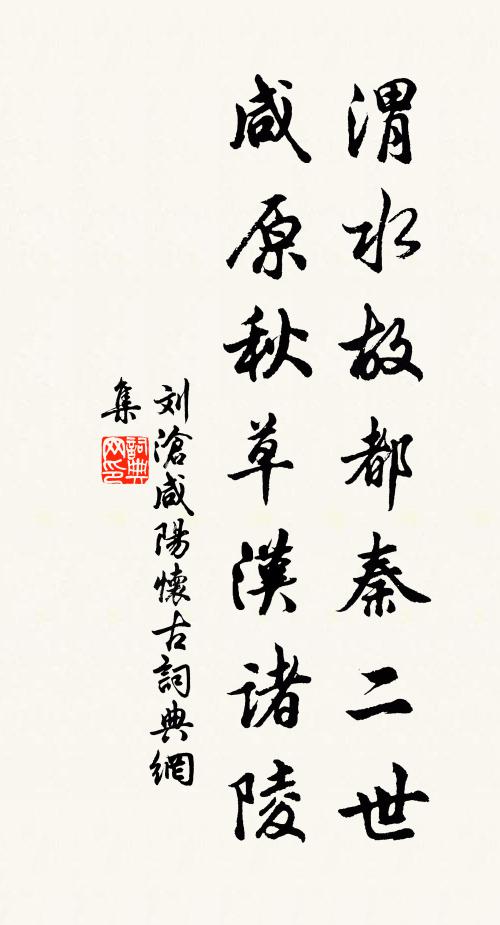 渭水故都秦二世
咸原秋草漢诸陵
刘滄咸陽懷古詞典網
集
詞典
网印